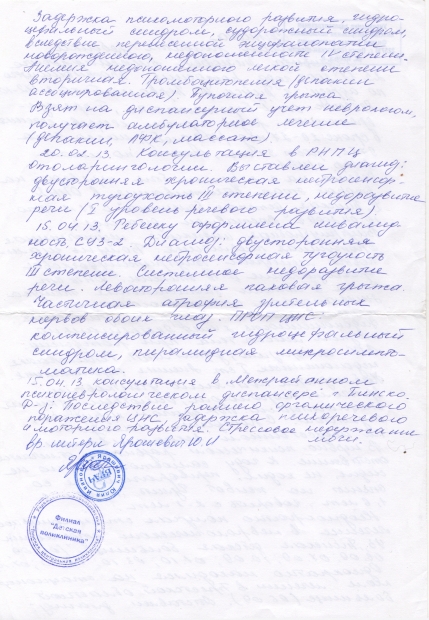 Задержка психомоторного развития, гидро-
цефальный синдром, судорожный синдром,
вследствие перенесенной энцефалопатии
новорожденного, недоношенного IV степени.
Анемия недоношенного легкой степени
вторичная. Тромбоцитопения (депакин
ассоциированная). Пупочная грыжа
Взят на диспансерный учет неврологом,
получает амбулаторное лечение
(депакин, ЛФК, массаж)
20.02.13 Консультация в РНПЦ
отоларингологии. Выставлен диагноз:
двусторонняя хроническая нейросенсор-
ная тугоухость III степени, недоразвитие
речи (I уровень речевого развития)
15.04.13. Ребенку оформлена инвалид-
ность, СУЗ-2. Диагноз: двусторонняя
хроническая нейросенсорная тугоухость
III степени. Системное недоразвитие
речи. Левосторонняя паховая грыжа.
Частичная атрофия зрительных
нервов обоих глаз. ПРОП ЦНС:
компенсированный гидроцефальный
синдром, пирамидная микросимпто-
матика.
15.04.13 консультация в Межрайонном
психоневрологическом диспансере г. Пинска.
Д-з: Последствие раннего органического
поражения ЦНС, задержка психоречевого
и моторного развития. Стрессовое недержание
мочи.
вр. Ярошевич Ю.И
ВРАЧ
Филиал
"Детская
поликлиника"